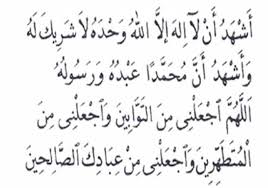 أَشْهَدُ أَنْ لَآ إِلٰهَ إِلَّا اللهُ وَحْدَهُ لَا شَرِيْكَ لَهُ
وَأَشْهَدُ أَنَّ مُحَمَّدًا عَبْدُهُ وَرَسُوْلُهُ
اَللّٰهُمَّ اجْعَلْنِى مِنَ التَّوَّابِيْنَ وَاجْعَلْنِى مِنَ
الْمُتَطَهِّرِيْنَ وَاجْعَلْنِى مِنْ عِبَادِكَ الصَّالِحِيْنَ